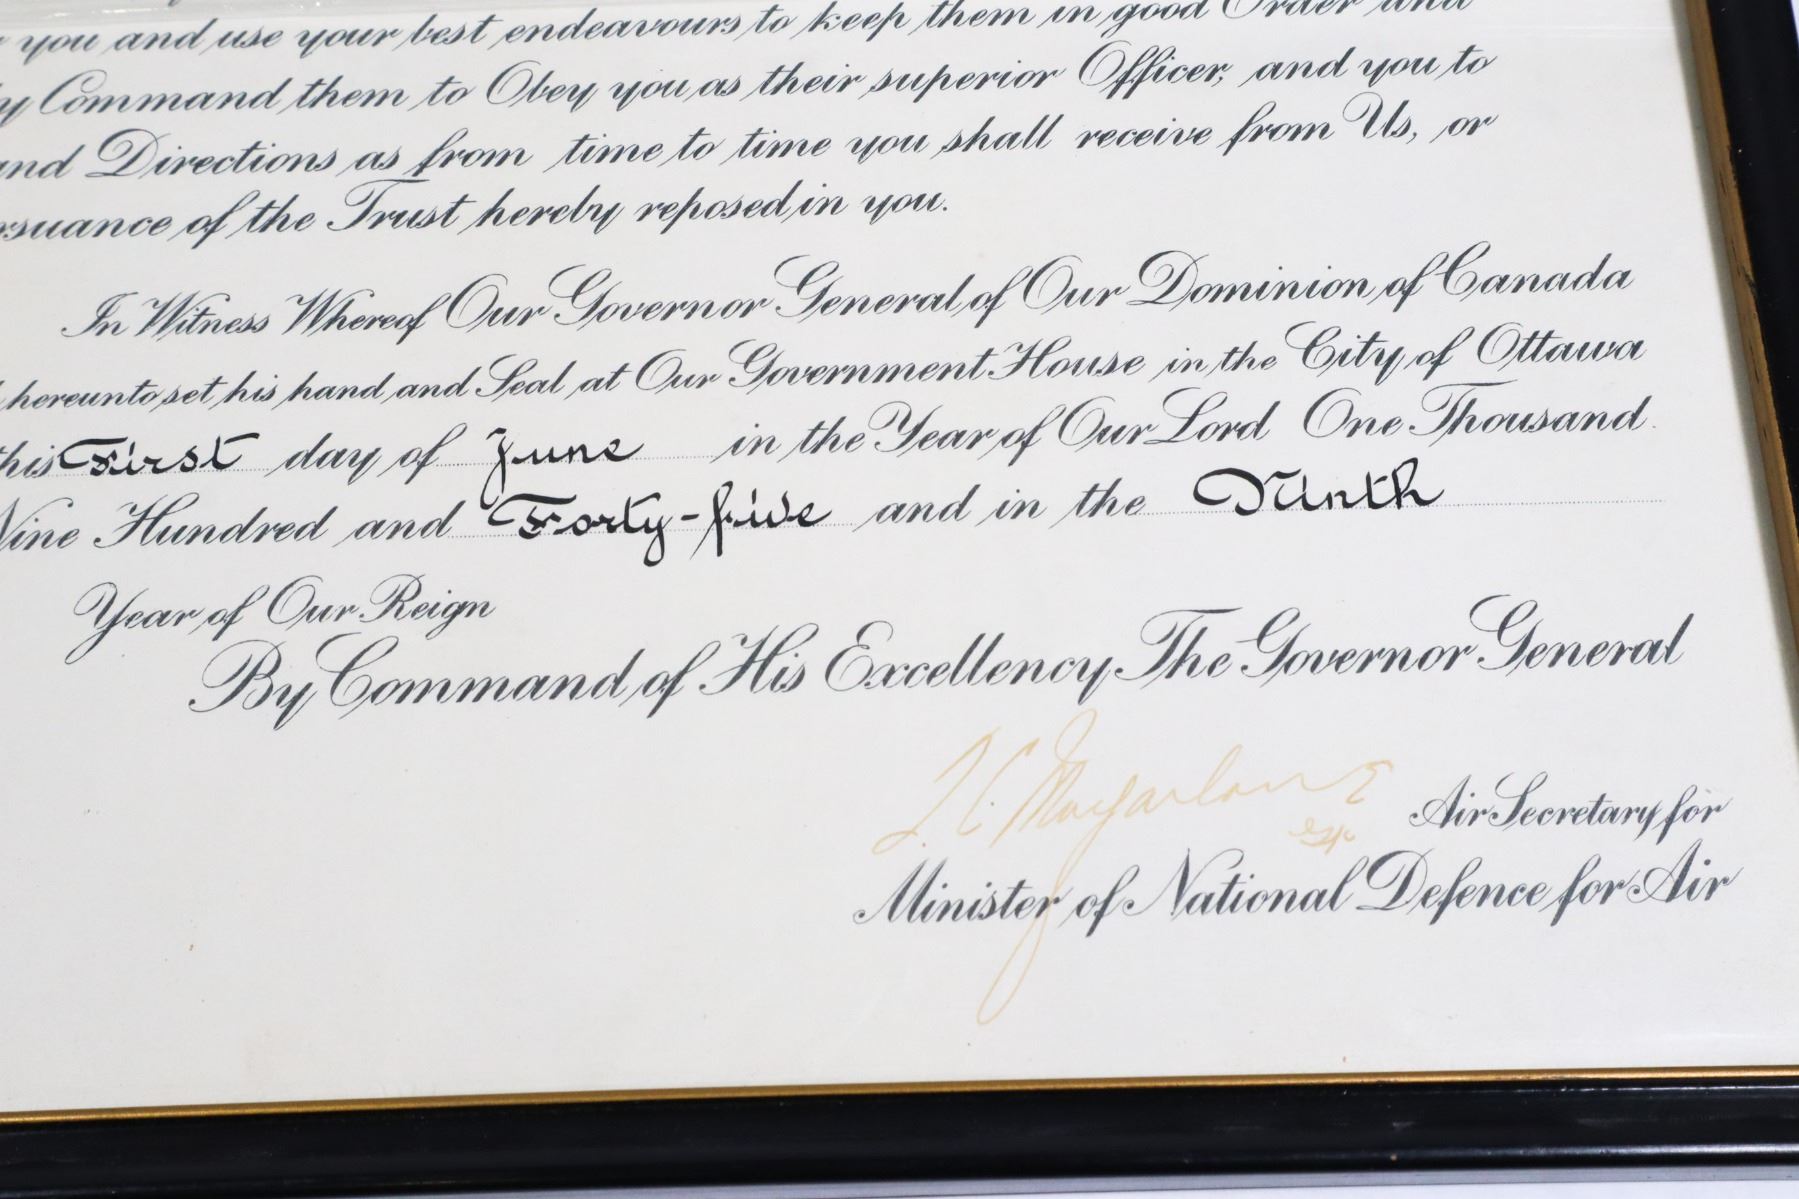 you and use your best endeavours to keep them in good Order and
Command them to Obey you as their superior Officer, and you to
Directions as from time to time you shall receive from Us, or
of the Trust hereby reposed in you.
In Witness Whereof Our Governor General of Our Dominion of Canada
hereunto set his hand and Seal at Our Government House in the City of Ottawa
this First day of June in the Year of Our Lord One Thousand
Nine Hundred and Forty-five and in the Ninth
Year of Our Reign
By Command of His Excellency The Governor General
Air Secretary for
Minister of National Defence for Air